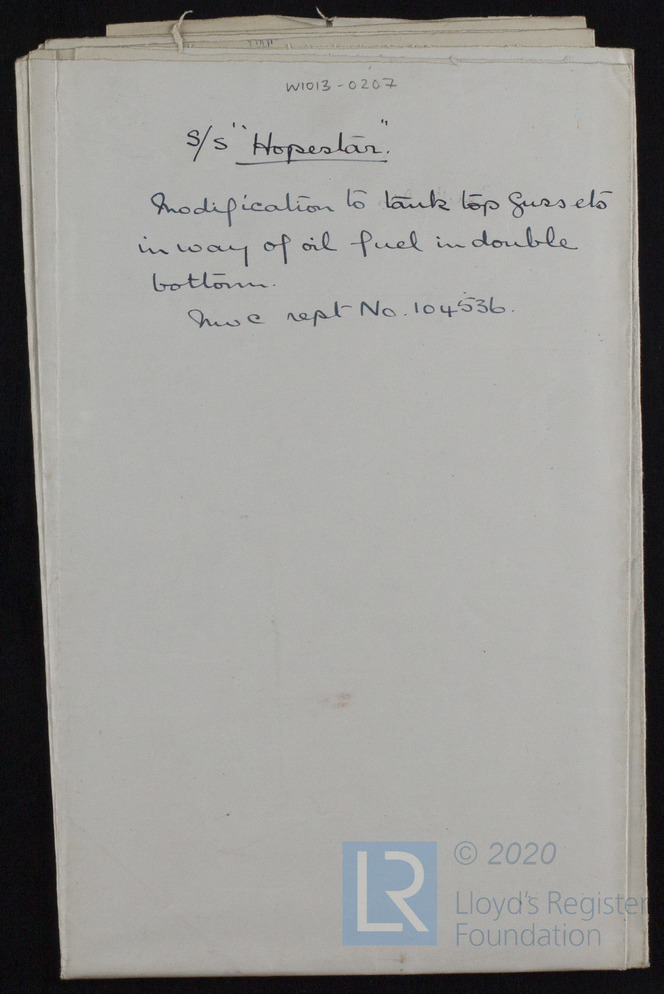 W1013-0207
S/S "Hopestar".
Modification to tank top gussets
in way of oil fuel in double
bottom.
Nwc rept No. 104536.
LR
© 2020
Lloyd's Register
Foundation